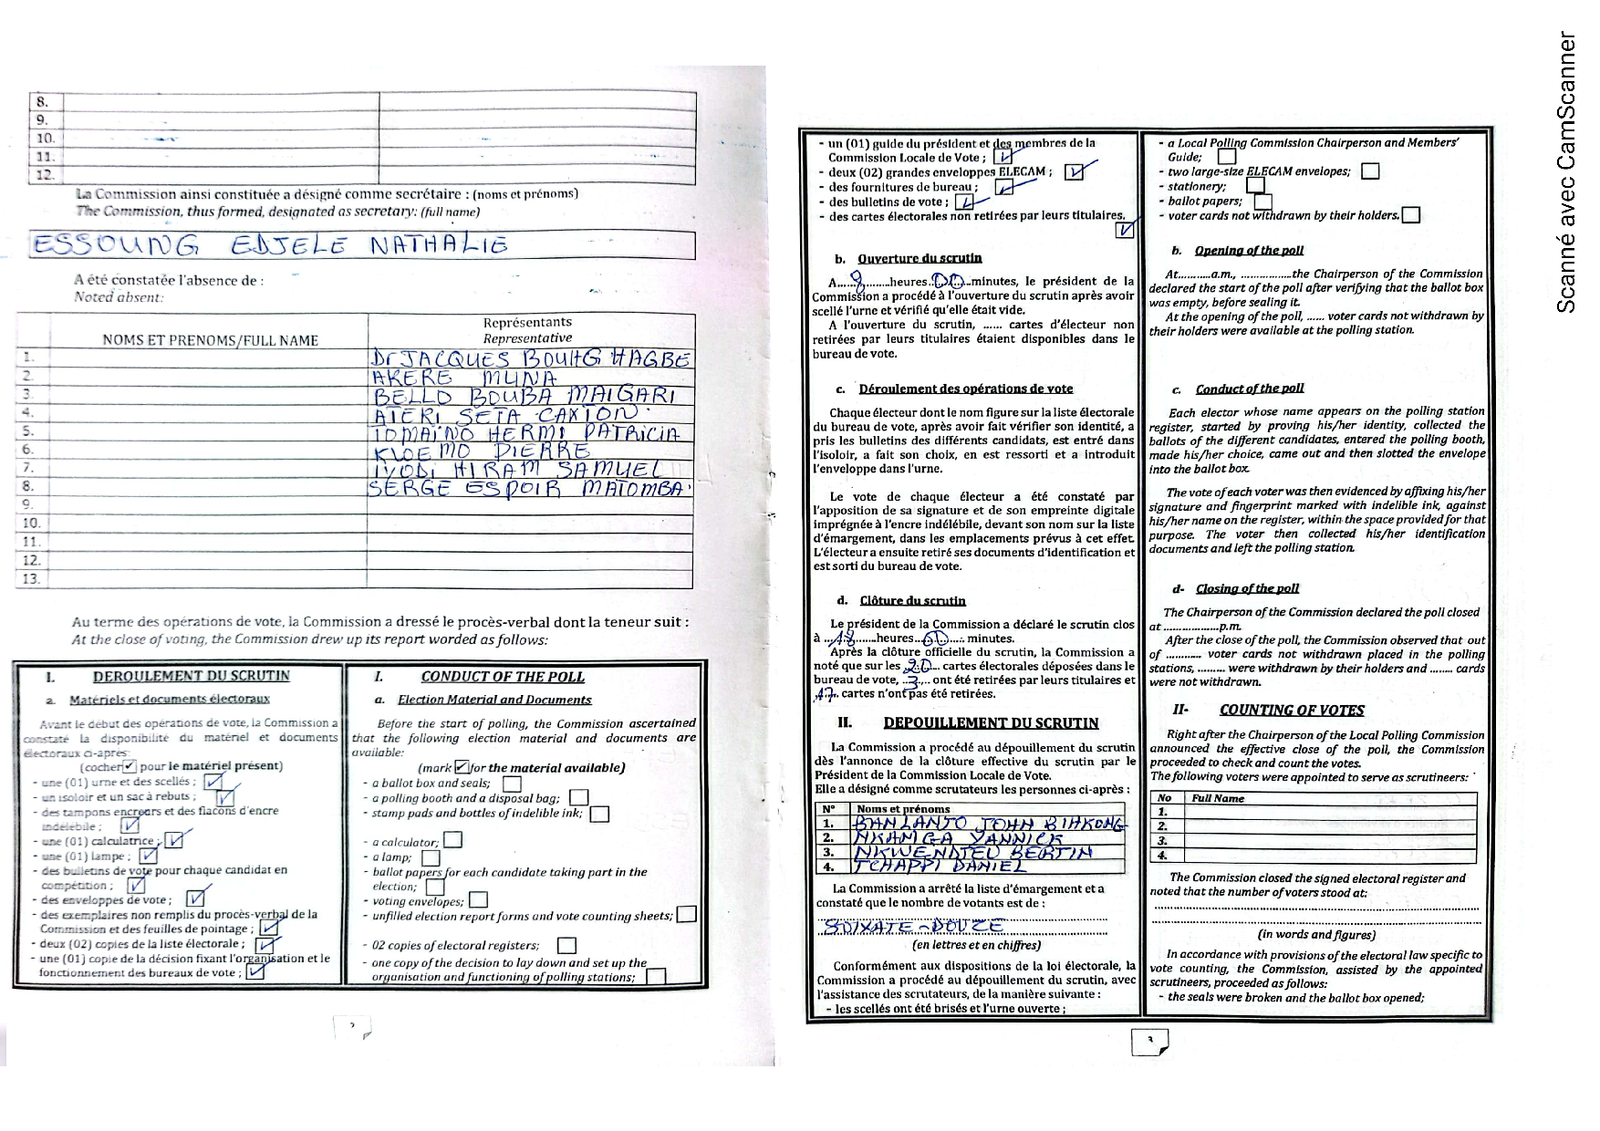 8.
9.
10.
11.
12.
La Commission ainsi constituée a désigné comme secrétaire : (noms et prénoms)
The Commission, thus formed, designated as secretary: (full name)
ESSOUNG EDJELE NATHALIE
A été constatée l'absence de :
Noted absent:
NOMS ET PRENOMS/FULL NAME
Représentants
Representative
1. Dr JACQUES BOUHG HAGBE
2. AKERE MUNA
3. BELLO BOUBA MAIGARI
4. ATEKI SETA CAXTON
5. TOMAÏNO HERMI PATRICIA
6. KWEMO PIERRE
7. IYODI HIRAM SAMUEL
8. SERGE ESPOIR MATOMBA
9.
10.
11.
12.
13.
Au terme des opérations de vote, la Commission a dressé le procès-verbal dont la teneur suit :
At the close of voting, the Commission drew up its report worded as follows:
I. DEROULEMENT DU SCRUTIN
a. Matériels et documents électoraux
Avant le début des opérations de vote, la Commission a
constaté la disponibilité du matériel et documents
électoraux ci-après:
(cocher ✓ pour le matériel présent)
- une (01) urne et des scellés ; ✓
- un isoloir et un sac à rebuts ; ✓
- des tampons encreurs et des flacons d'encre
indélébile ; ✓
- une (01) calculatrice ; ✓
- une (01) lampe ; ✓
- des bulletins de vote pour chaque candidat en
compétition ; ✓
- des enveloppes de vote ; ✓
- des exemplaires non remplis du procès-verbal de la
Commission et des feuilles de pointage ; ✓
- deux (02) copies de la liste électorale ; ✓
- une (01) copie de la décision fixant l'organisation et le
fonctionnement des bureaux de vote ; ✓
I. CONDUCT OF THE POLL
a. Election Material and Documents
Before the start of polling, the Commission ascertained
that the following election material and documents are
available:
(mark ✓ for the material available)
- a ballot box and seals;
- a polling booth and a disposal bag;
- stamp pads and bottles of indelible ink;
- a calculator;
- a lamp;
- ballot papers for each candidate taking part in the
election;
- voting envelopes;
- unfilled election report forms and vote counting sheets;
- 02 copies of electoral registers;
- one copy of the decision to lay down and set up the
organisation and functioning of polling stations;
2
- un (01) guide du président et des membres de la
Commission Locale de Vote ; ✓
- deux (02) grandes enveloppes ELECAM ; ✓
- des fournitures de bureau ; ✓
- des bulletins de vote ; ✓
- des cartes électorales non retirées par leurs titulaires.
✓
b. Ouverture du scrutin
A...8......heures..00...minutes, le président de la
Commission a procédé à l'ouverture du scrutin après avoir
scellé l'urne et vérifié qu'elle était vide.
A l'ouverture du scrutin, ...... cartes d'électeur non
retirées par leurs titulaires étaient disponibles dans le
bureau de vote.
c. Déroulement des opérations de vote
Chaque électeur dont le nom figure sur la liste électorale
du bureau de vote, après avoir fait vérifier son identité, a
pris les bulletins des différents candidats, est entré dans
l'isoloir, a fait son choix, en est ressorti et a introduit
l'enveloppe dans l'urne.
Le vote de chaque électeur a été constaté par
l'apposition de sa signature et de son empreinte digitale
imprégnée à l'encre indélébile, devant son nom sur la liste
d'émargement, dans les emplacements prévus à cet effet.
L'électeur a ensuite retiré ses documents d'identification et
est sorti du bureau de vote.
d. Clôture du scrutin
Le président de la Commission a déclaré le scrutin clos
à ...18......heures...00.... minutes.
Après la clôture officielle du scrutin, la Commission a
noté que sur les .20... cartes électorales déposées dans le
bureau de vote, ..3... ont été retirées par leurs titulaires et
.17.. cartes n'ont pas été retirées.
II. DEPOUILLEMENT DU SCRUTIN
La Commission a procédé au dépouillement du scrutin
dès l'annonce de la clôture effective du scrutin par le
Président de la Commission Locale de Vote.
Elle a désigné comme scrutateurs les personnes ci-après :
N° Noms et prénoms
1. BANLANJO JOHN BIAKONG
2. NKAMGA YANNICK
3. NKWENDJEU BERTIN
4. TCHAPPI DANIEL
La Commission a arrêté la liste d'émargement et a
constaté que le nombre de votants est de :
SOIXATE-DOUZE
(en lettres et en chiffres)
Conformément aux dispositions de la loi électorale, la
Commission a procédé au dépouillement du scrutin, avec
l'assistance des scrutateurs, de la manière suivante :
- les scellés ont été brisés et l'urne ouverte ;
- a Local Polling Commission Chairperson and Members'
Guide;
- two large-size ELECAM envelopes;
- stationery;
- ballot papers;
- voter cards not withdrawn by their holders.
b. Opening of the poll
At...........a.m., .................the Chairperson of the Commission
declared the start of the poll after verifying that the ballot box
was empty, before sealing it.
At the opening of the poll, ...... voter cards not withdrawn by
their holders were available at the polling station.
c. Conduct of the poll
Each elector whose name appears on the polling station
register, started by proving his/her identity, collected the
ballots of the different candidates, entered the polling booth,
made his/her choice, came out and then slotted the envelope
into the ballot box.
The vote of each voter was then evidenced by affixing his/her
signature and fingerprint marked with indelible ink, against
his/her name on the register, within the space provided for that
purpose. The voter then collected his/her identification
documents and left the polling station.
d- Closing of the poll
The Chairperson of the Commission declared the poll closed
at ...................p.m.
After the close of the poll, the Commission observed that out
of ............ voter cards not withdrawn placed in the polling
stations, ......... were withdrawn by their holders and ........ cards
were not withdrawn.
II- COUNTING OF VOTES
Right after the Chairperson of the Local Polling Commission
announced the effective close of the poll, the Commission
proceeded to check and count the votes.
The following voters were appointed to serve as scrutineers:
No Full Name
1.
2.
3.
4.
The Commission closed the signed electoral register and
noted that the number of voters stood at:
(in words and figures)
In accordance with provisions of the electoral law specific to
vote counting, the Commission, assisted by the appointed
scrutineers, proceeded as follows:
- the seals were broken and the ballot box opened;
3
Scanné avec CamScanner